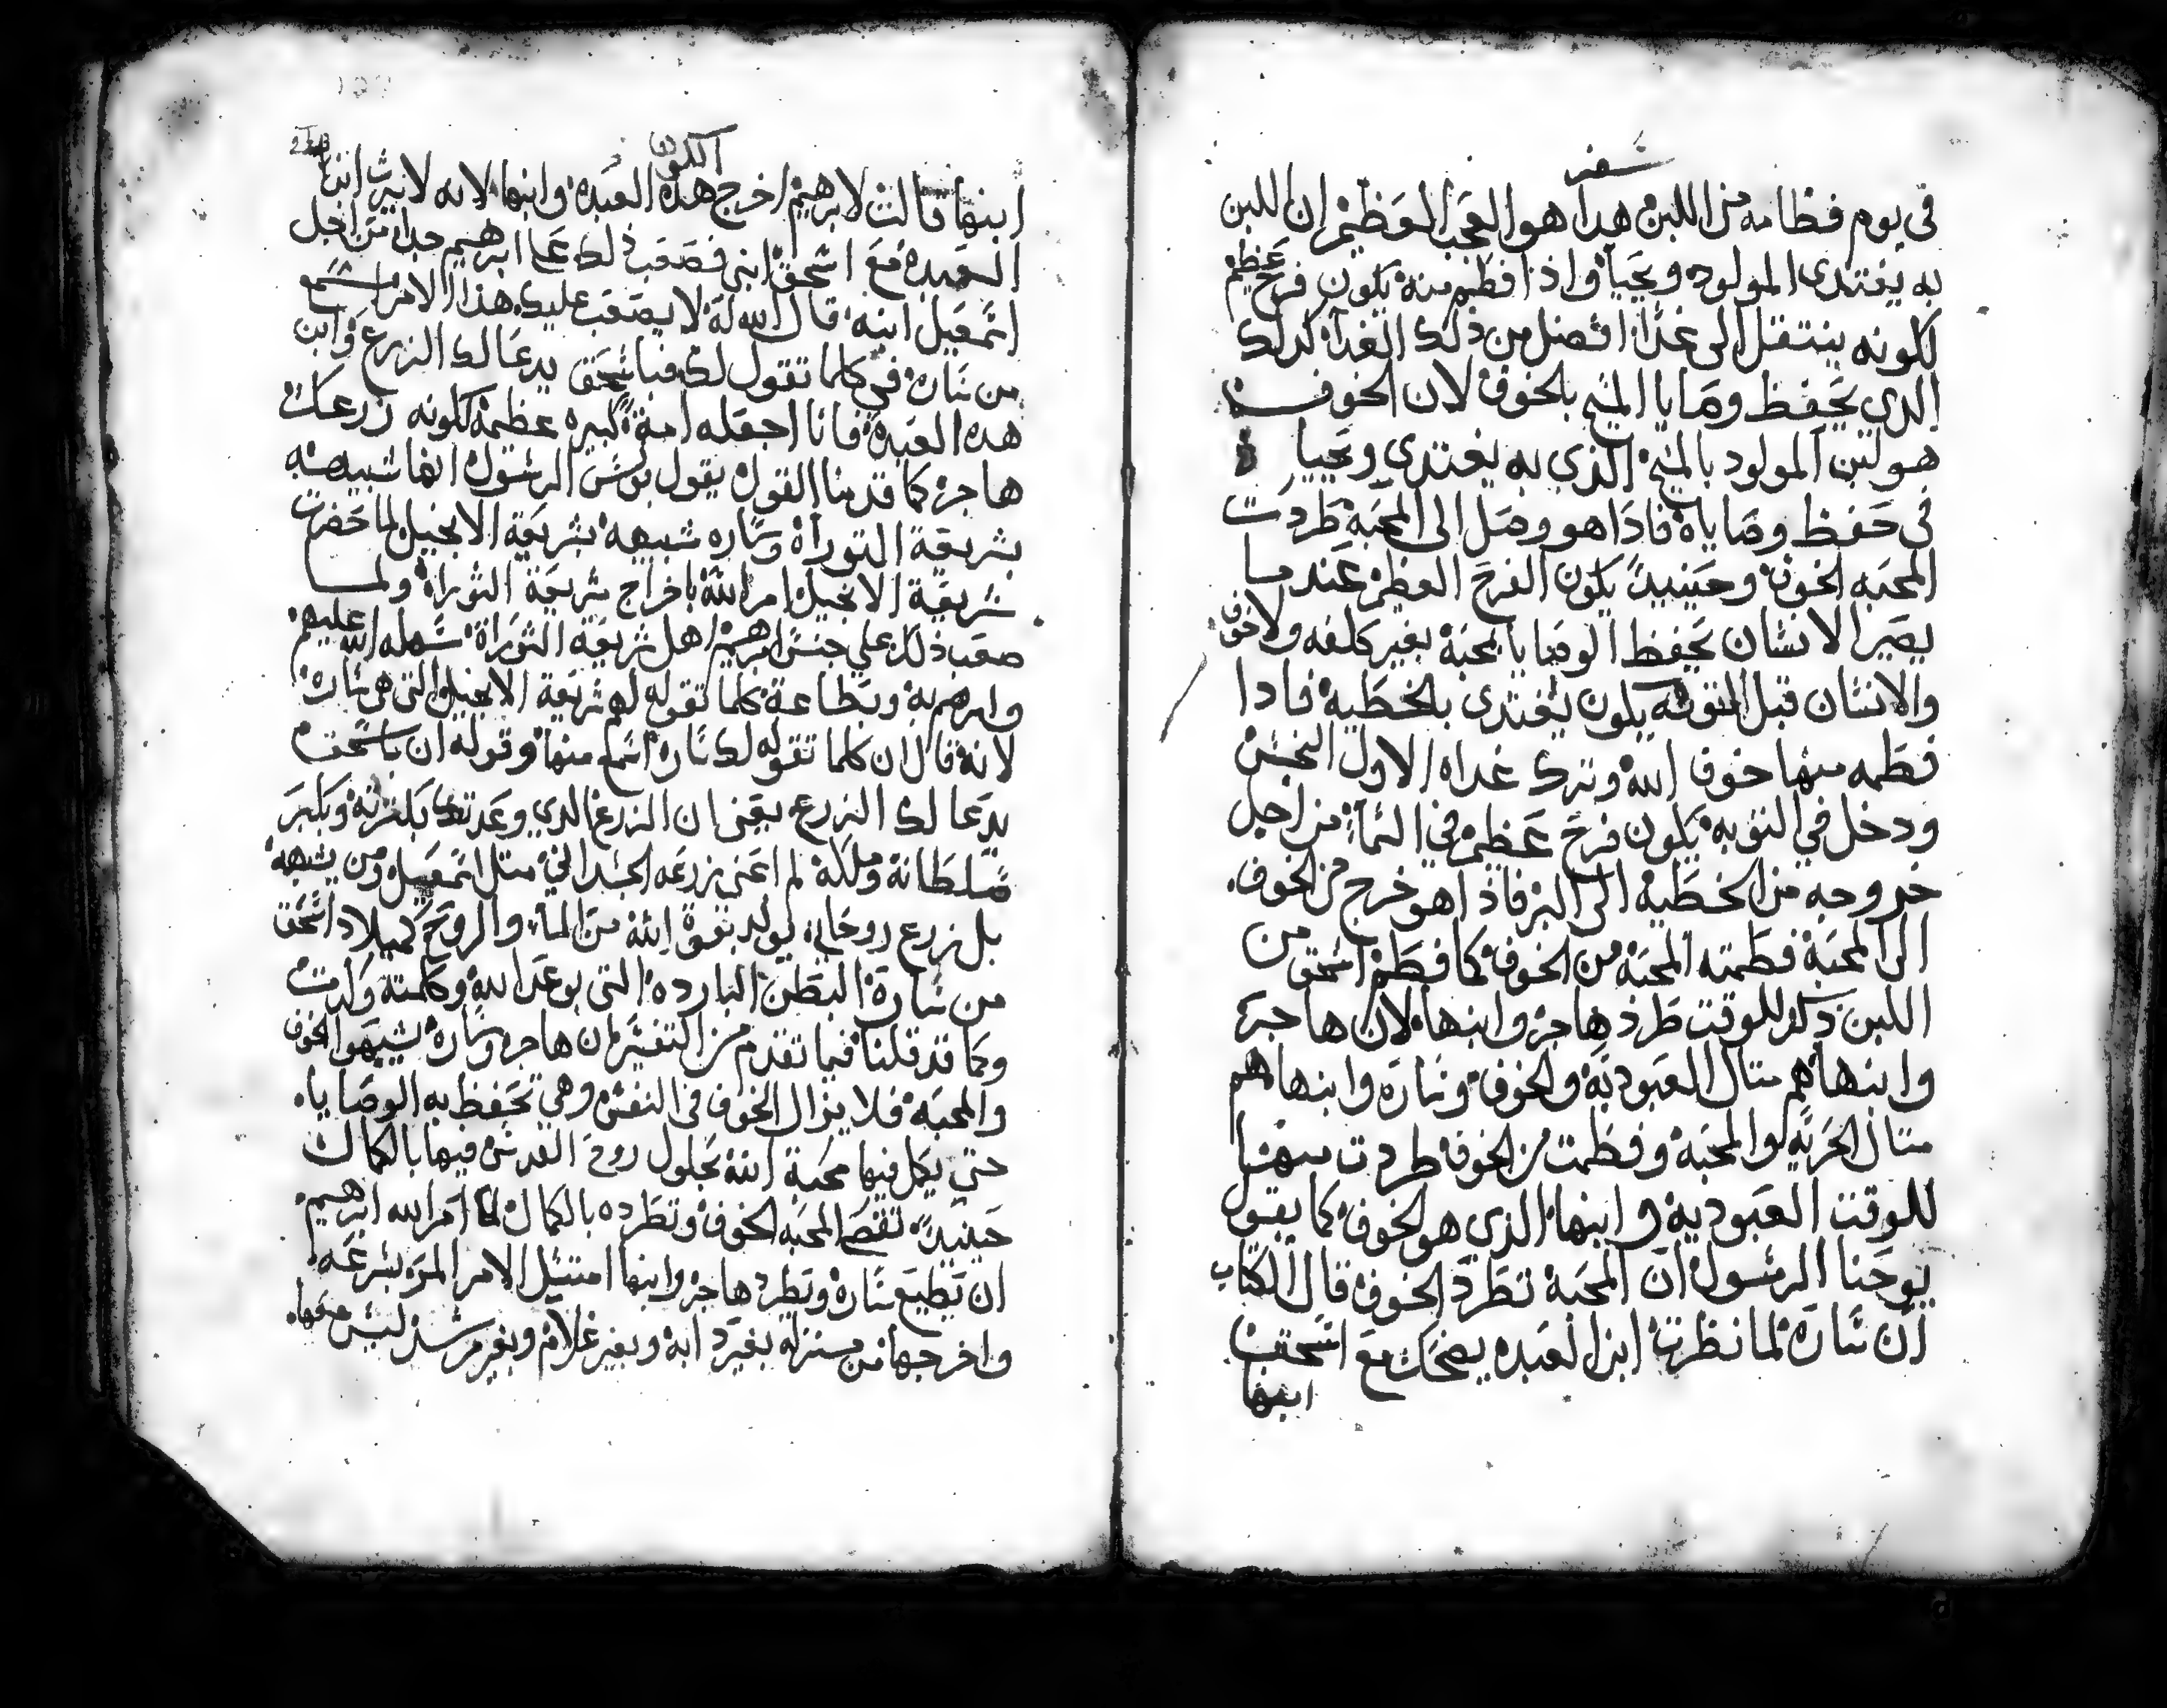 سفر
في يوم فطامه من اللبن هدا هو العجب العظيم ان اللبن
به يغتدى المولود ويحيا واذا فطم منه يكون فرح عظيم
لكونه ينتقل الى غدا افضل من ذلك الغدا كدلك
الدي يحفظ وصايا المسيح بالخوف لان الخوف
هو لبن المولود بالمسيح الذي به يغتدي ويحيا
في حفظ وصاياه فاذا هو وصل الى المحبة طردت
المحبه الخوف وحينيد يكون الفرح العظيم عندما
يصير الانسان يحفظ الوصايا بالمحبة بغير كلفه ولا خوف
والانسان قبل التوبه يكون يغتدى بالخطية فادا
فطمه منها خوف الله وترك غداه الاول النجس
ودخل في التوبه يكون فرح عظيم في السما من اجل
خروجه من الخطية الى البر فاذا هو خرج من الخوف
الى المحبة فطمته المحبة من الخوف كما فطم اسحق من
اللبن دلك الوقت طرد هاجر وابنها لان هاجر
وابنها هم متال العبودية والخوف وسارة وابنها هم
متال الحرية والمحبة وفطمت من الخوف طردت بيهما
للوقت العبودية وابنها الذي هو الخوف كما يقول
يوحنا الرسول ان المحبة تطرد الخوف قال الكتاب
ان سارة لما نظرت ابن العبده يضحك مع اسحق
ابنها
التكوين
ابنها قالت لابرهيم اخرج هذه العبده وابنها لانه لا يرث ابن
العبده مع اسحق ابني فصعب ذلك على ابرهيم جدا من اجل
اسمعيل ابنه قال الله له لا يصعب عليك هذا الامر اسمع
من سارة في كلما تقول لك فباسحق يدعا لك الزرع وابن
هده العبدة فانا اجعله امة كبيره عظيمة لكونه زرعك
هاجر كما قدمنا القول يقول بولس الرسول انها شبيهه
بشريعة التوراة وساره شبيهة بشريعة الانجيل لما حضرت
شريعة الانجيل امر الله باخراج شريعة التوراة ولما
صعب ذلك علي جنس ابرهيم اهل شريعة التوراة سهله الله عليهم
وامرهم به وبطاعة كلما تقوله لهم شريعة الانجيل التي هي سارة
لانه قال ان كلما تقوله لك سارة اسمع منها وقوله ان باسحق
يدعا لك الزرع يعني ان الزرع الدي وعدتك بكثرته وبكبر
سلطانه وملكه لم اعني زرعه الجسداني مثل اسمعيل ومن يشبهه
بل زرع روحاني يولد بقوة الله من الما والروح كميلاد اسحق
من سارة البطن البارده التي بوعد الله وكلمته ولدت
وكما قد قلنا فيما تقدم من التفسير ان هاجر وسارة شبهوا الخوف
والمحبة فلا يزال الخوف في النفس وهي تحفظ به الوصايا
حتي يكمل فيها محبة الله بحلول روح القدس فيها بالكمال
حينيد تقصي المحبه الخوف وتطرده بالكمال لما امر الله ابرهيم
ان تطيع سارة وتطرد هاجر وابنها امتثل الامر المر بسرعه
واخرجها من منزله بغير دابه وبغير غلام وبغير مرشد ليس معها